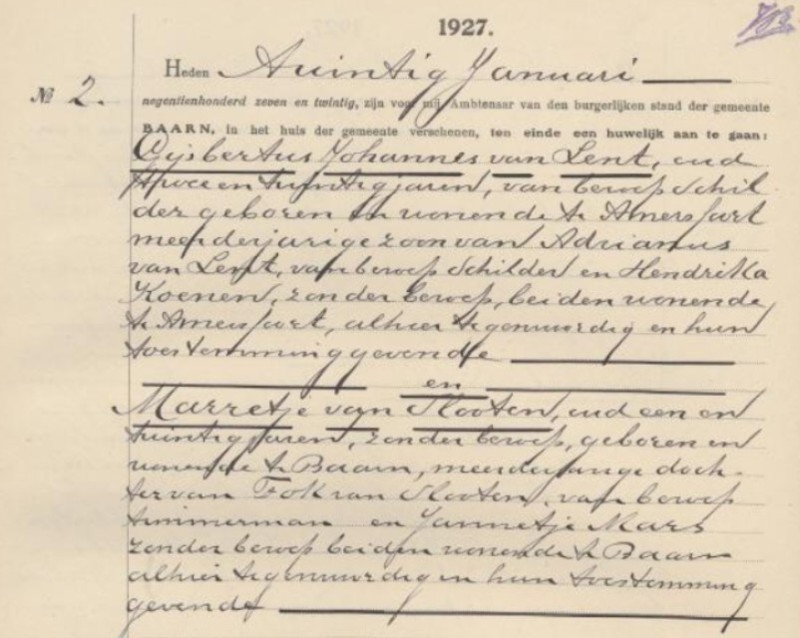 1927.
Heden Twintig Januari
No 2.
negentienhonderd zeven en twintig, zijn voor mij Ambtenaar van den burgerlijken stand der gemeente
BAARN, in het huis der gemeente verschenen, ten einde een huwelijk aan te gaan:
Gijsbertus Johannes van Lent, oud
twee en twintig jaren, van beroep Schil
der geboren en wonende te Amersfoort
meerderjarige zoon van Adrianus
van Lent, van beroep Schilder en Hendrika
Koenen, zonder beroep, beiden wonende
te Amersfoort, alhier tegenwoordig en hun
toestemming gevende
en
Marretje van Slooten, oud een en
twintig jaren, zonder beroep, geboren en
wonende te Baarn, meerderjarige doch-
ter van Fok van Slooten, van beroep
timmerman en Jannetje Mars
zonder beroep beiden wonende te Baarn
alhier tegenwoordig en hun toestemming
gevende